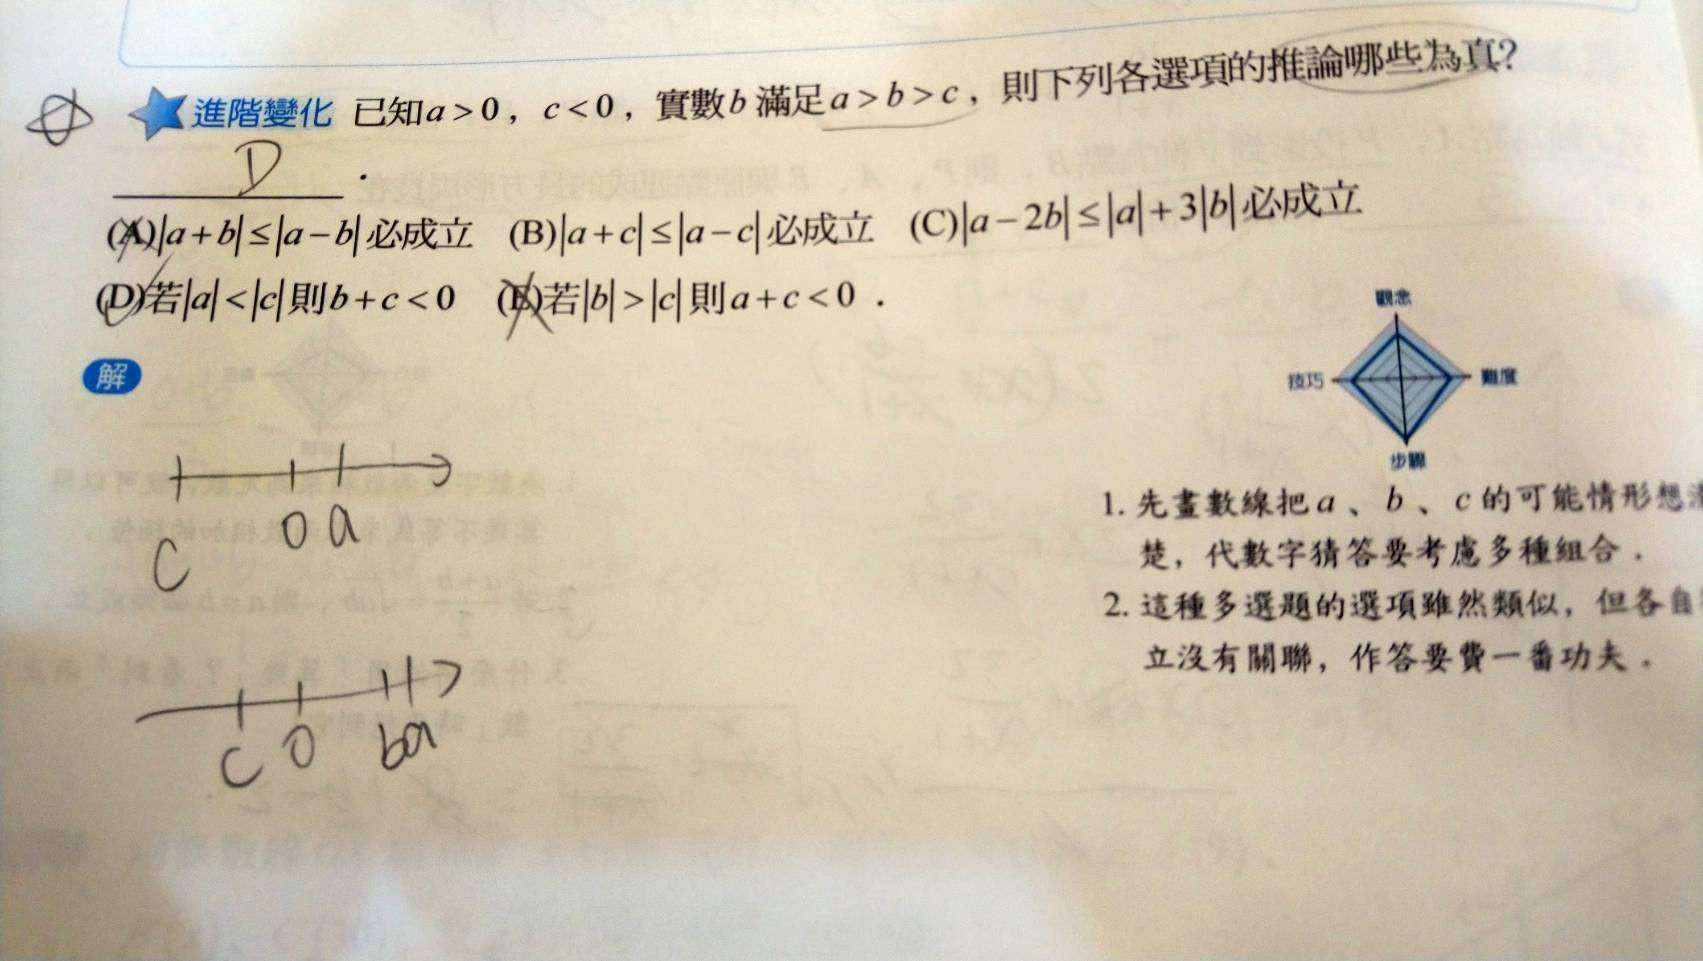 進階變化 已知a>0，c<0，實數b滿足a>b>c，則下列各選項的推論哪些為真?
D .
(A)|a+b|≤|a-b|必成立 (B)|a+c|≤|a-c|必成立 (C)|a-2b|≤|a|+3|b|必成立
(D)若|a|<|c|則b+c<0 (E)若|b|>|c|則a+c<0．
觀念
技巧 難度
步驟
解
C 0 a
C 0 b a
1. 先畫數線把a、b、c的可能情形想清
楚，代數字猜答要考慮多種組合．
2. 這種多選題的選項雖然類似，但各自
立沒有關聯，作答要費一番功夫．